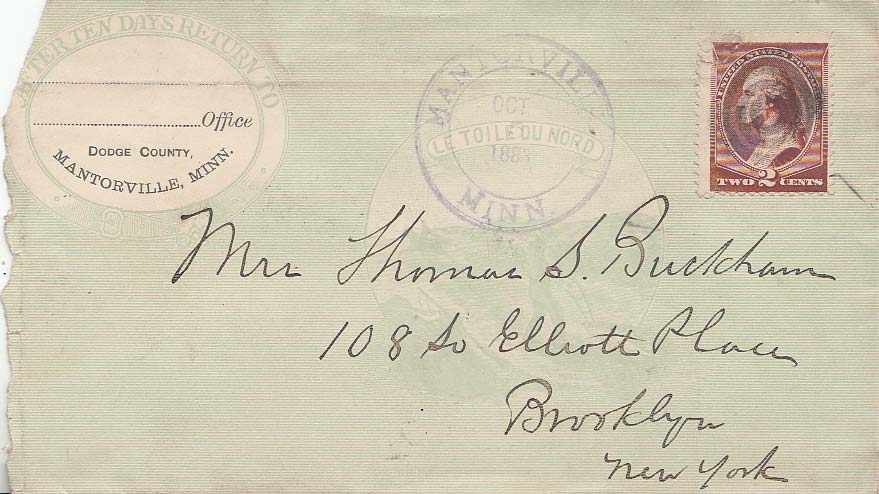 AFTER TEN DAYS RETURN TO
Office
DODGE COUNTY,
MANTORVILLE, MINN.
MANTORVILLE
OCT
188
MINN.
LE TOILE DU NORD
UNITED STATES POSTAGE
TWO 2 CENTS
Mrs Thomas S. Buckham
108 So Elliott Place
Brooklyn
New York